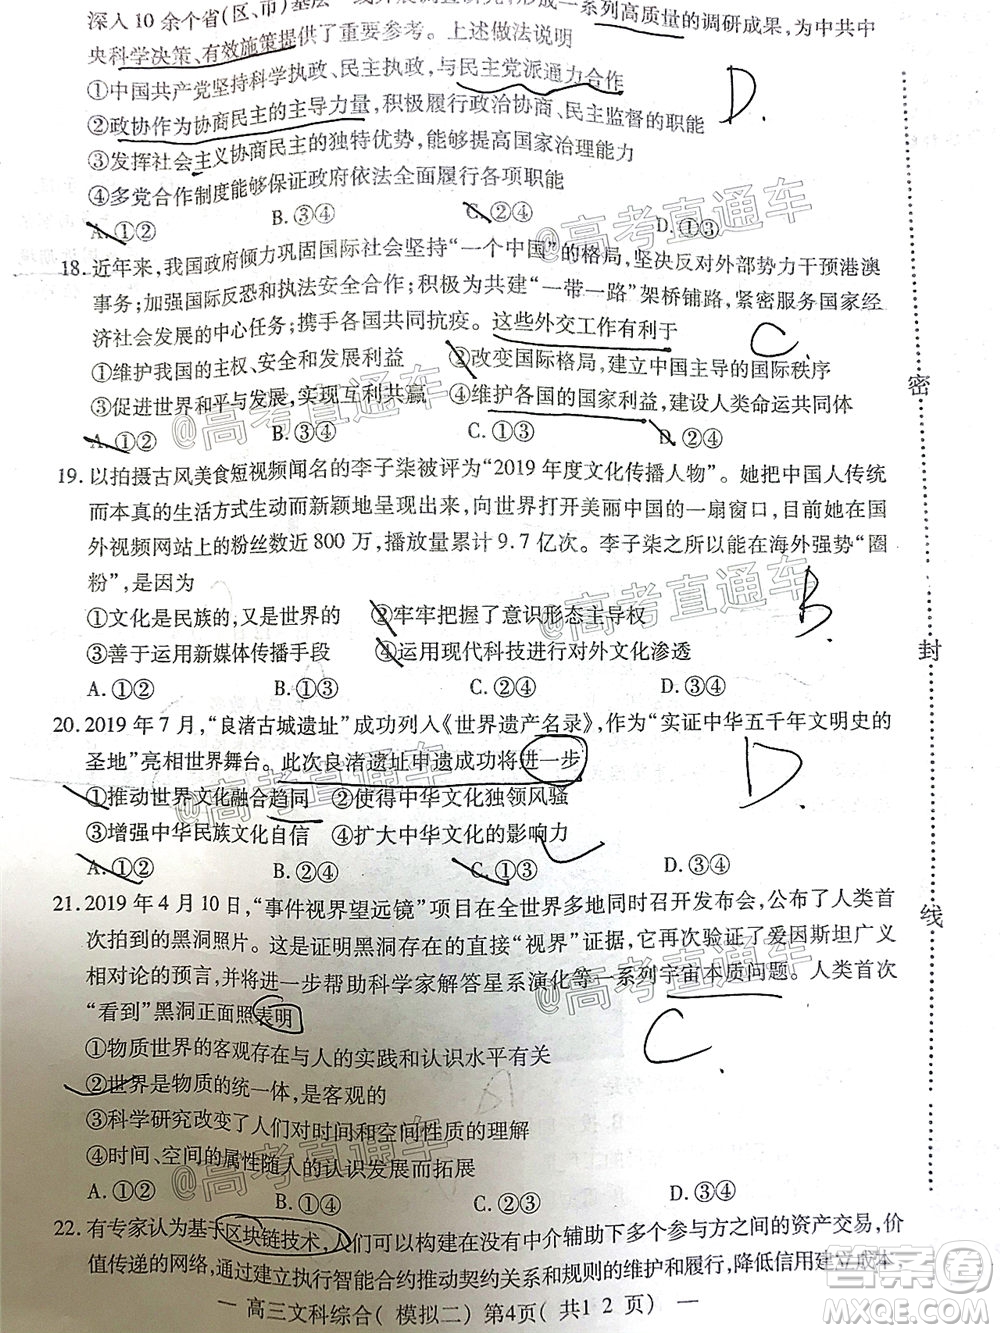 深入 10 余个省(区、市)基层一线开展调研,形成一系列高质量的调研成果,为中共中
央科学决策、有效施策提供了重要参考。上述做法说明
①中国共产党坚持科学执政、民主执政,与民主党派通力合作
②政协作为协商民主的主导力量,积极履行政治协商、民主监督的职能
③发挥社会主义协商民主的独特优势,能够提高国家治理能力
④多党合作制度能够保证政府依法全面履行各项职能
A.①② B.③④ C.②④ D.①③
D.
18. 近年来,我国政府倾力巩固国际社会坚持“一个中国”的格局,坚决反对外部势力干预港澳
事务;加强国际反恐和执法安全合作;积极为共建“一带一路”架桥铺路,紧密服务国家经
济社会发展的中心任务;携手各国共同抗疫。这些外交工作有利于
C.
①维护我国的主权、安全和发展利益 ②改变国际格局,建立中国主导的国际秩序
③促进世界和平与发展,实现互利共赢 ④维护各国的国家利益,建设人类命运共同体
A.①② B.③④ C.①③ D.②④
19. 以拍摄古风美食短视频闻名的李子柒被评为“2019 年度文化传播人物”。她把中国人传统
而本真的生活方式生动而新颖地呈现出来,向世界打开美丽中国的一扇窗口,目前她在国
外视频网站上的粉丝数近 800 万,播放量累计 9.7 亿次。李子柒之所以能在海外强势“圈
粉”,是因为
B.
①文化是民族的,又是世界的 ②牢牢把握了意识形态主导权
③善于运用新媒体传播手段 ④运用现代科技进行对外文化渗透
A.①② B.①③ C.②④ D.③④
20. 2019 年 7 月,“良渚古城遗址”成功列入《世界遗产名录》,作为“实证中华五千年文明史的
圣地”亮相世界舞台。此次良渚遗址申遗成功将进一步
D.
①推动世界文化融合趋同 ②使得中华文化独领风骚
③增强中华民族文化自信 ④扩大中华文化的影响力
A.①② B.②④ C.①③ D.③④
21. 2019 年 4 月 10 日,“事件视界望远镜”项目在全世界多地同时召开发布会,公布了人类首
次拍到的黑洞照片。这是证明黑洞存在的直接“视界”证据,它再次验证了爱因斯坦广义
相对论的预言,并将进一步帮助科学家解答星系演化等一系列宇宙本质问题。人类首次
“看到”黑洞正面照表明
C.
①物质世界的客观存在与人的实践和认识水平有关
②世界是物质的统一体,是客观的
③科学研究改变了人们对时间和空间性质的理解
④时间、空间的属性随人的认识发展而拓展
A.①② B.①④ C.②③ D.③④
22. 有专家认为基于区块链技术,人们可以构建在没有中介辅助下多个参与方之间的资产交易,价
值传递的网络,通过建立执行智能合约推动契约关系和规则的维护和履行,降低信用建立成本
— 高三文科综合( 模拟二) 第4页( 共1 2 页) —
密
封
线
@高考直通车
@高考直通车
@高考直通车
@高考直通车
@高考直通车
@高考直通车
答案圈
MXQE.COM